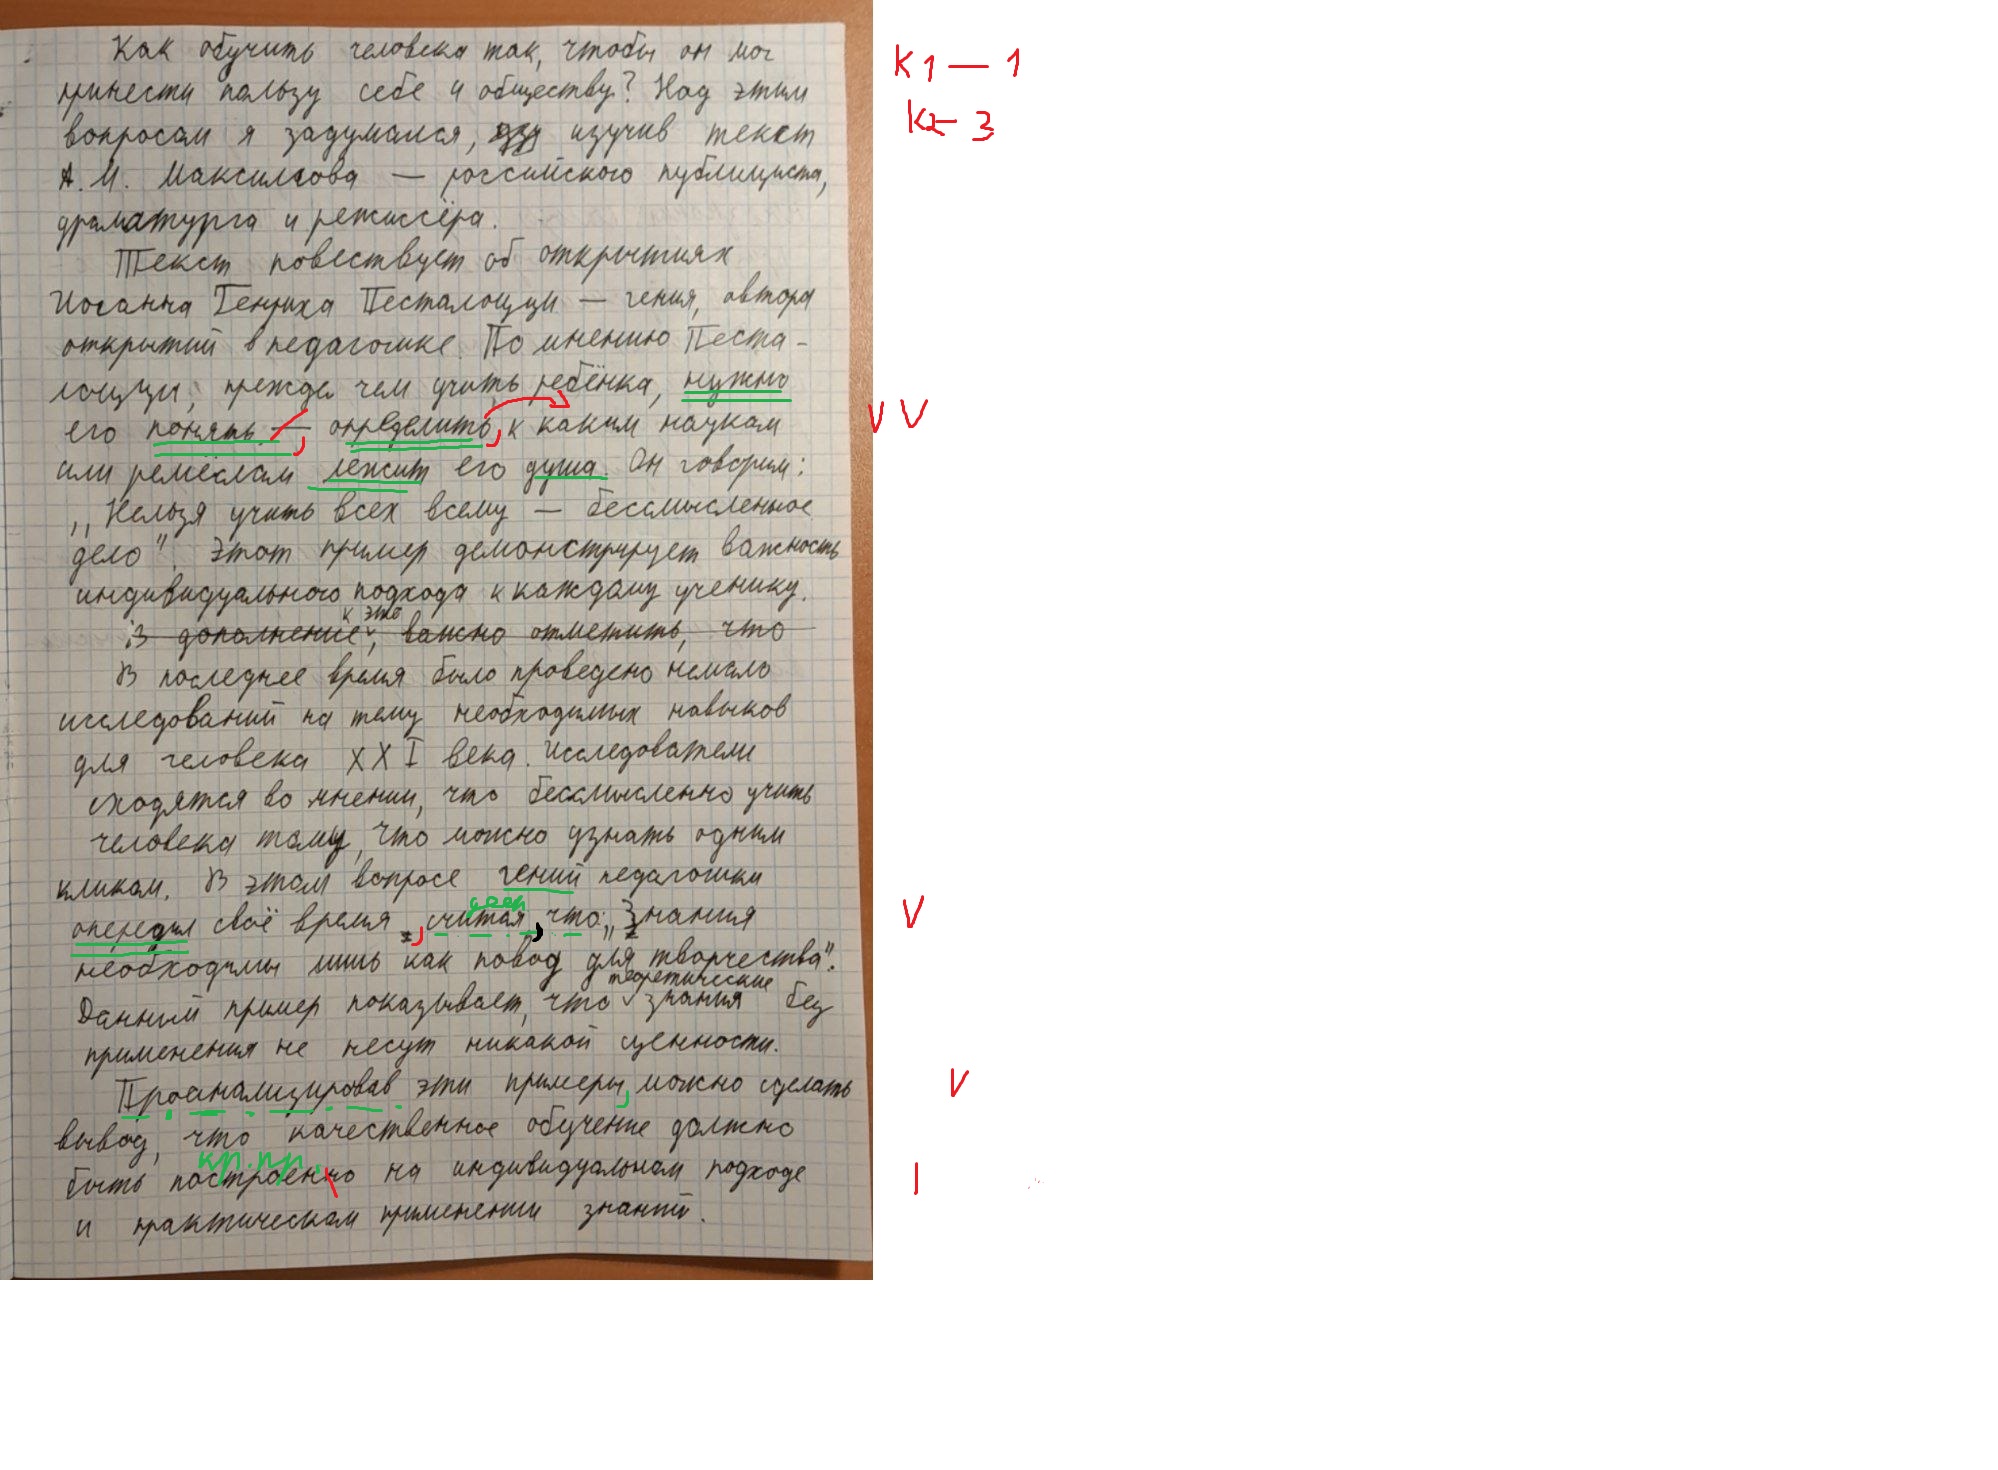 Как обучить человека так, чтобы он мог
принести пользу себе и обществу? Над этим
вопросом я задумался, изучив текст
А. М. Максимова — российского публициста,
драматурга и режиссёра.
Текст повествует об открытиях
Иоганна Генриха Песталоцци — гения, автора
открытий в педагогике. По мнению Песта-
лоцци, прежде чем учить ребёнка, нужно
его понять — определить, к каким наукам
или ремёслам лежит его душа. Он говорим:
„Нельзя учить всех всему — бессмысленное
дело". Этот пример демонстрирует важность
индивидуального подхода к каждому ученику.
В дополнение к этому, важно отметить, что
В последнее время было проведено немало
исследований на тему необходимых навыков
для человека XXI века. Исследователи
сходятся во мнении, что бессмысленно учить
человека тому, что можно узнать одним
кликом. В этом вопросе гений педагогики
дееп
опередил своё время, считая, что „Знания
необходимы лишь как повод для творчества".
Данный пример показывает, что теоретические знания без
применения не несут никакой ценности.
Проанализировав эти примеры, можно сделать
вывод, что качественное обучение должно
кр. пр.
быть построенно на индивидуальном подходе
и практическом применении знаний.
К1 — 1
К2 — 3
V V
V
V
I